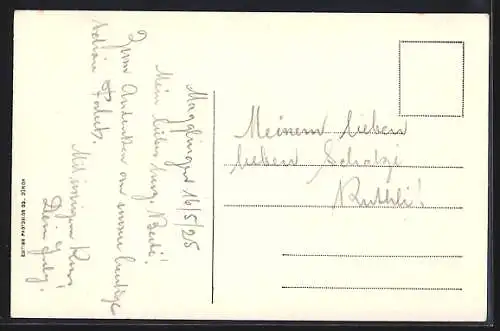 Magglingen 16/5/25
Mein liebes
Zum Andenken an unsere heutige
schöne Fahrt.
Mit innigem Kuss
Dein
Meinem lieben
lieben Schatzi
Ruthli!
EDITION PHOTOGLOB CO., ZÜRICH